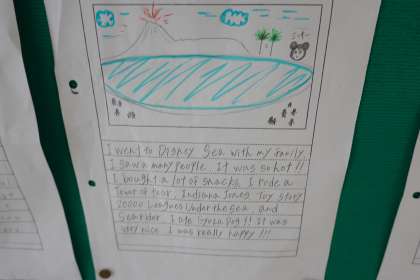 I went to Disney Sea with my family.
I saw a many people. It was so hot!!
I bought a lot of snacks. I rode a
Tower of Terror, Indiana Jones, Toy story
20000 Leagues Under the sea, and
Searider. I ate Gyoza Dog!! It was
very nice. I was really happy!!!